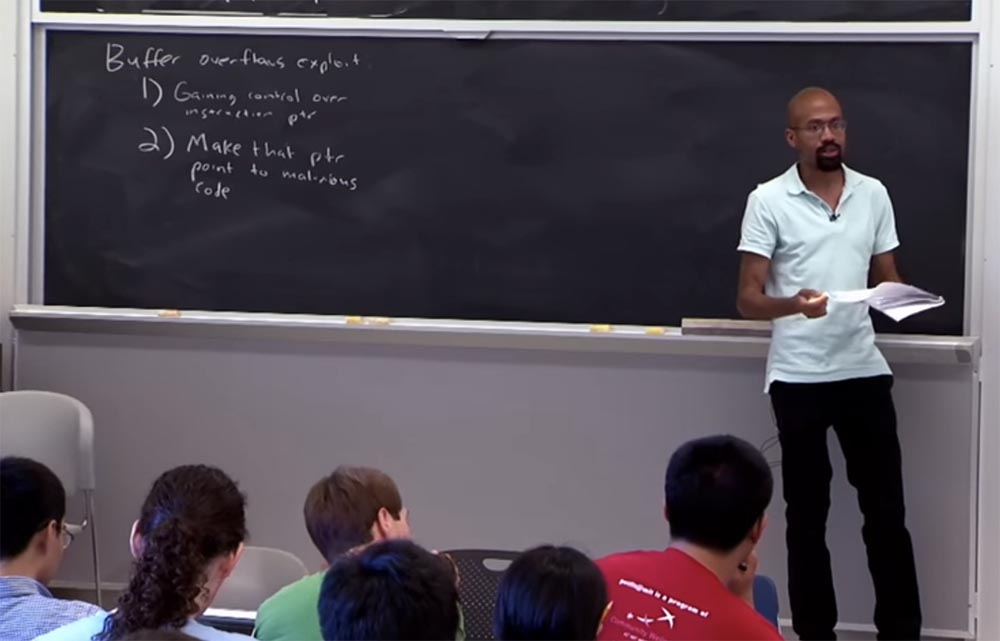 Buffer overflows exploit.
1) Gaining control over
instruction ptr
2) Make that ptr
point to malicious
code
is a program of
Community